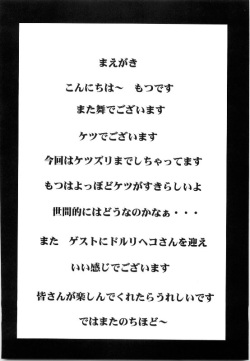 まえがき
こんにちは～　もつです
また舞でございます
ケツでございます
今回はケツズリまでしちゃってます
もつはよっぽどケツがすきらしいよ
世間的にはどうなのかなぁ・・・
また　ゲストにドルリヘコさんを迎え
いい感じでございます
皆さんが楽しんでくれたらうれしいです
ではまたのちほど～